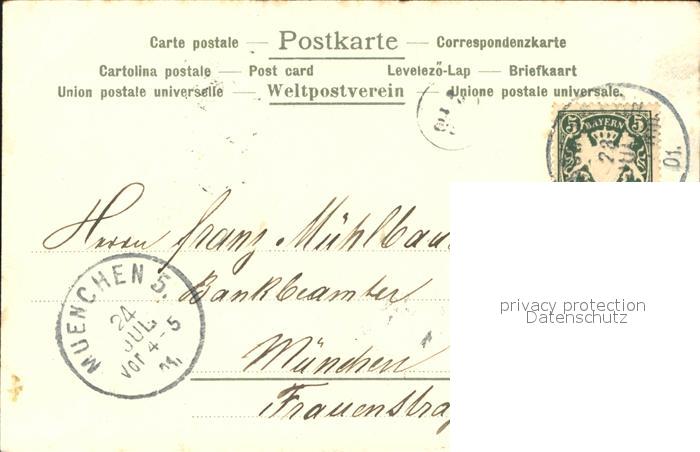 Carte postale — Postkarte — Correspondenzkarte
Cartolina postale — Post card Levelező-Lap — Briefkaart
Union postale universelle — Weltpostverein — Unione postale universale.
5 BAYERN 5
22 JUL 01.
Herrn Franz Mühlbau
Bankbeamter
München
Frauenstra
MUENCHEN 5.
24
JUL
Vor 4-5
01.
privacy protection
Datenschutz